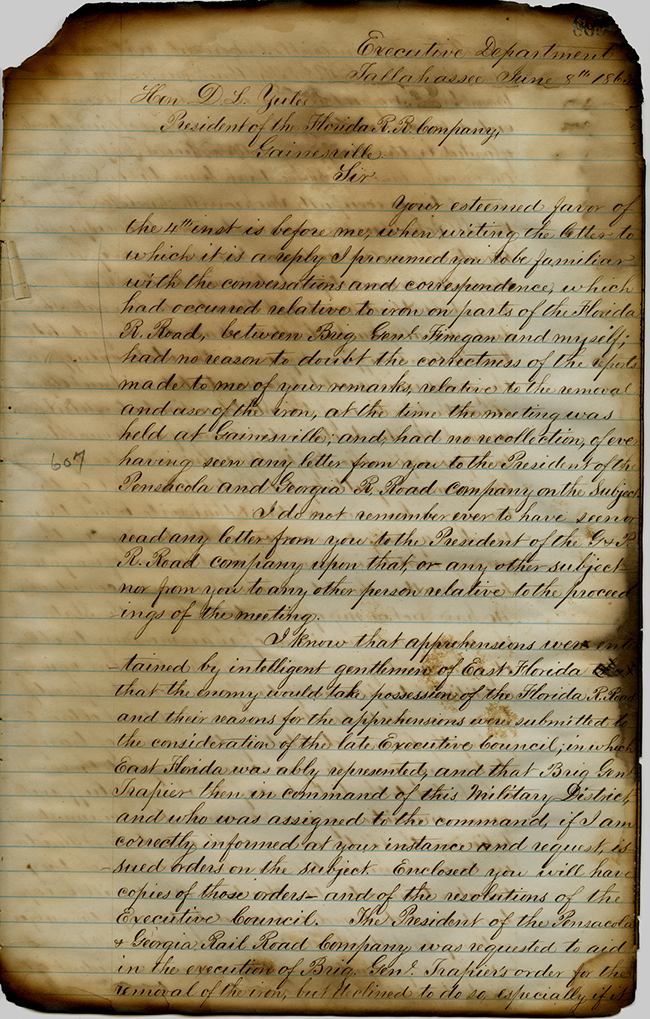 Executive Department
Tallahassee June 8th 186
Hon D. L. Yulee
President of the Florida R.R. Company,
Gainesville
Sir
Your esteemed favor of
the 4th inst is before me, when writing the letter to
which it is a reply I presumed you to be familiar
with the conversations and correspondence, which
had occurred relative to iron on parts of the Florida
R. Road, between Brig. Genl. Finegan and myself;
had no reason to doubt the correctness of the reports
made to me of your remarks, relative to the removal
and use of the iron, at the time the meeting was
held at Gainesville; and, had no recollection, of ever
having seen any letter from you to the President of the
607
Pensacola and Georgia R. Road company on the Subject
I do not remember ever to have seen or
read any letter from you to the President of the
R. Road company upon that, or any other subject
nor from you to any other person relative to the proceed
ings of the meeting.
I know that apprehensions were enter
tained by intelligent gentlemen of East Florida
that the enemy would take possession of the Florida R. Road
and their reasons for the apprehensions were submitted to
the consideration of the late Executive Council; in which
East Florida was ably represented, and that Brig Genl
Trapier then in command of this Military District,
and who was assigned to the command, if I am
correctly informed at your instance and request, is
sued orders on the subject. Enclosed you will have
copies of those orders— and of the resolutions of the
Executive Council. The President of the Pensacola
& Georgia Rail Road Company was requested to aid
in the execution of Brig. Genl. Trapier's order for the
removal of the iron, but declined to do so, especially if it